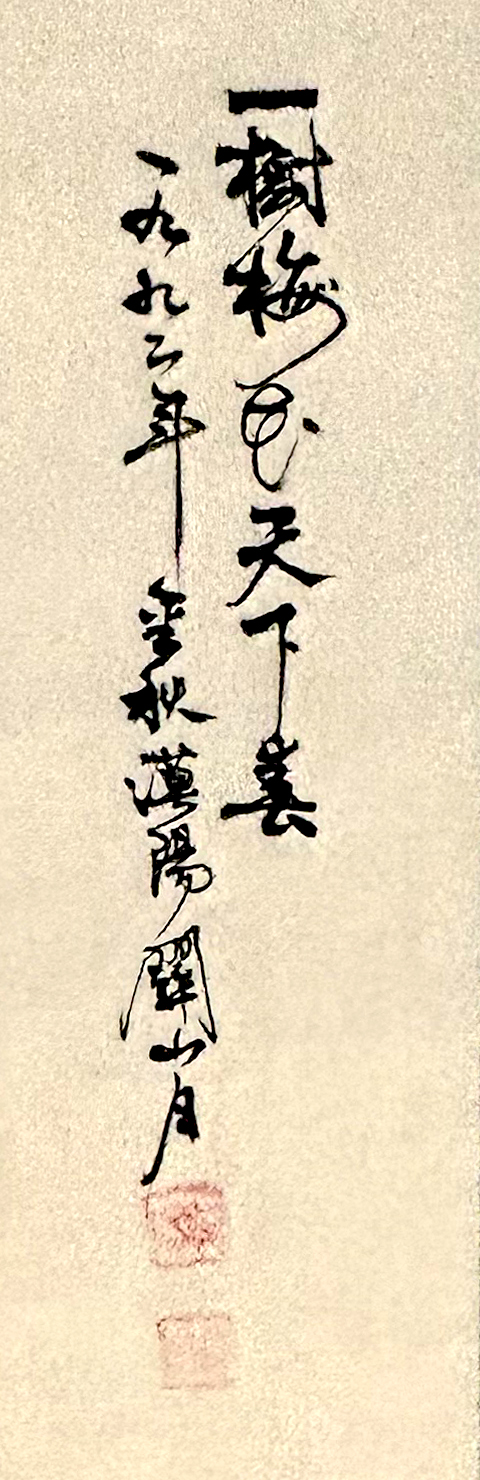 一樹梅花天下喜
一九九二年金秋漠陽關山月